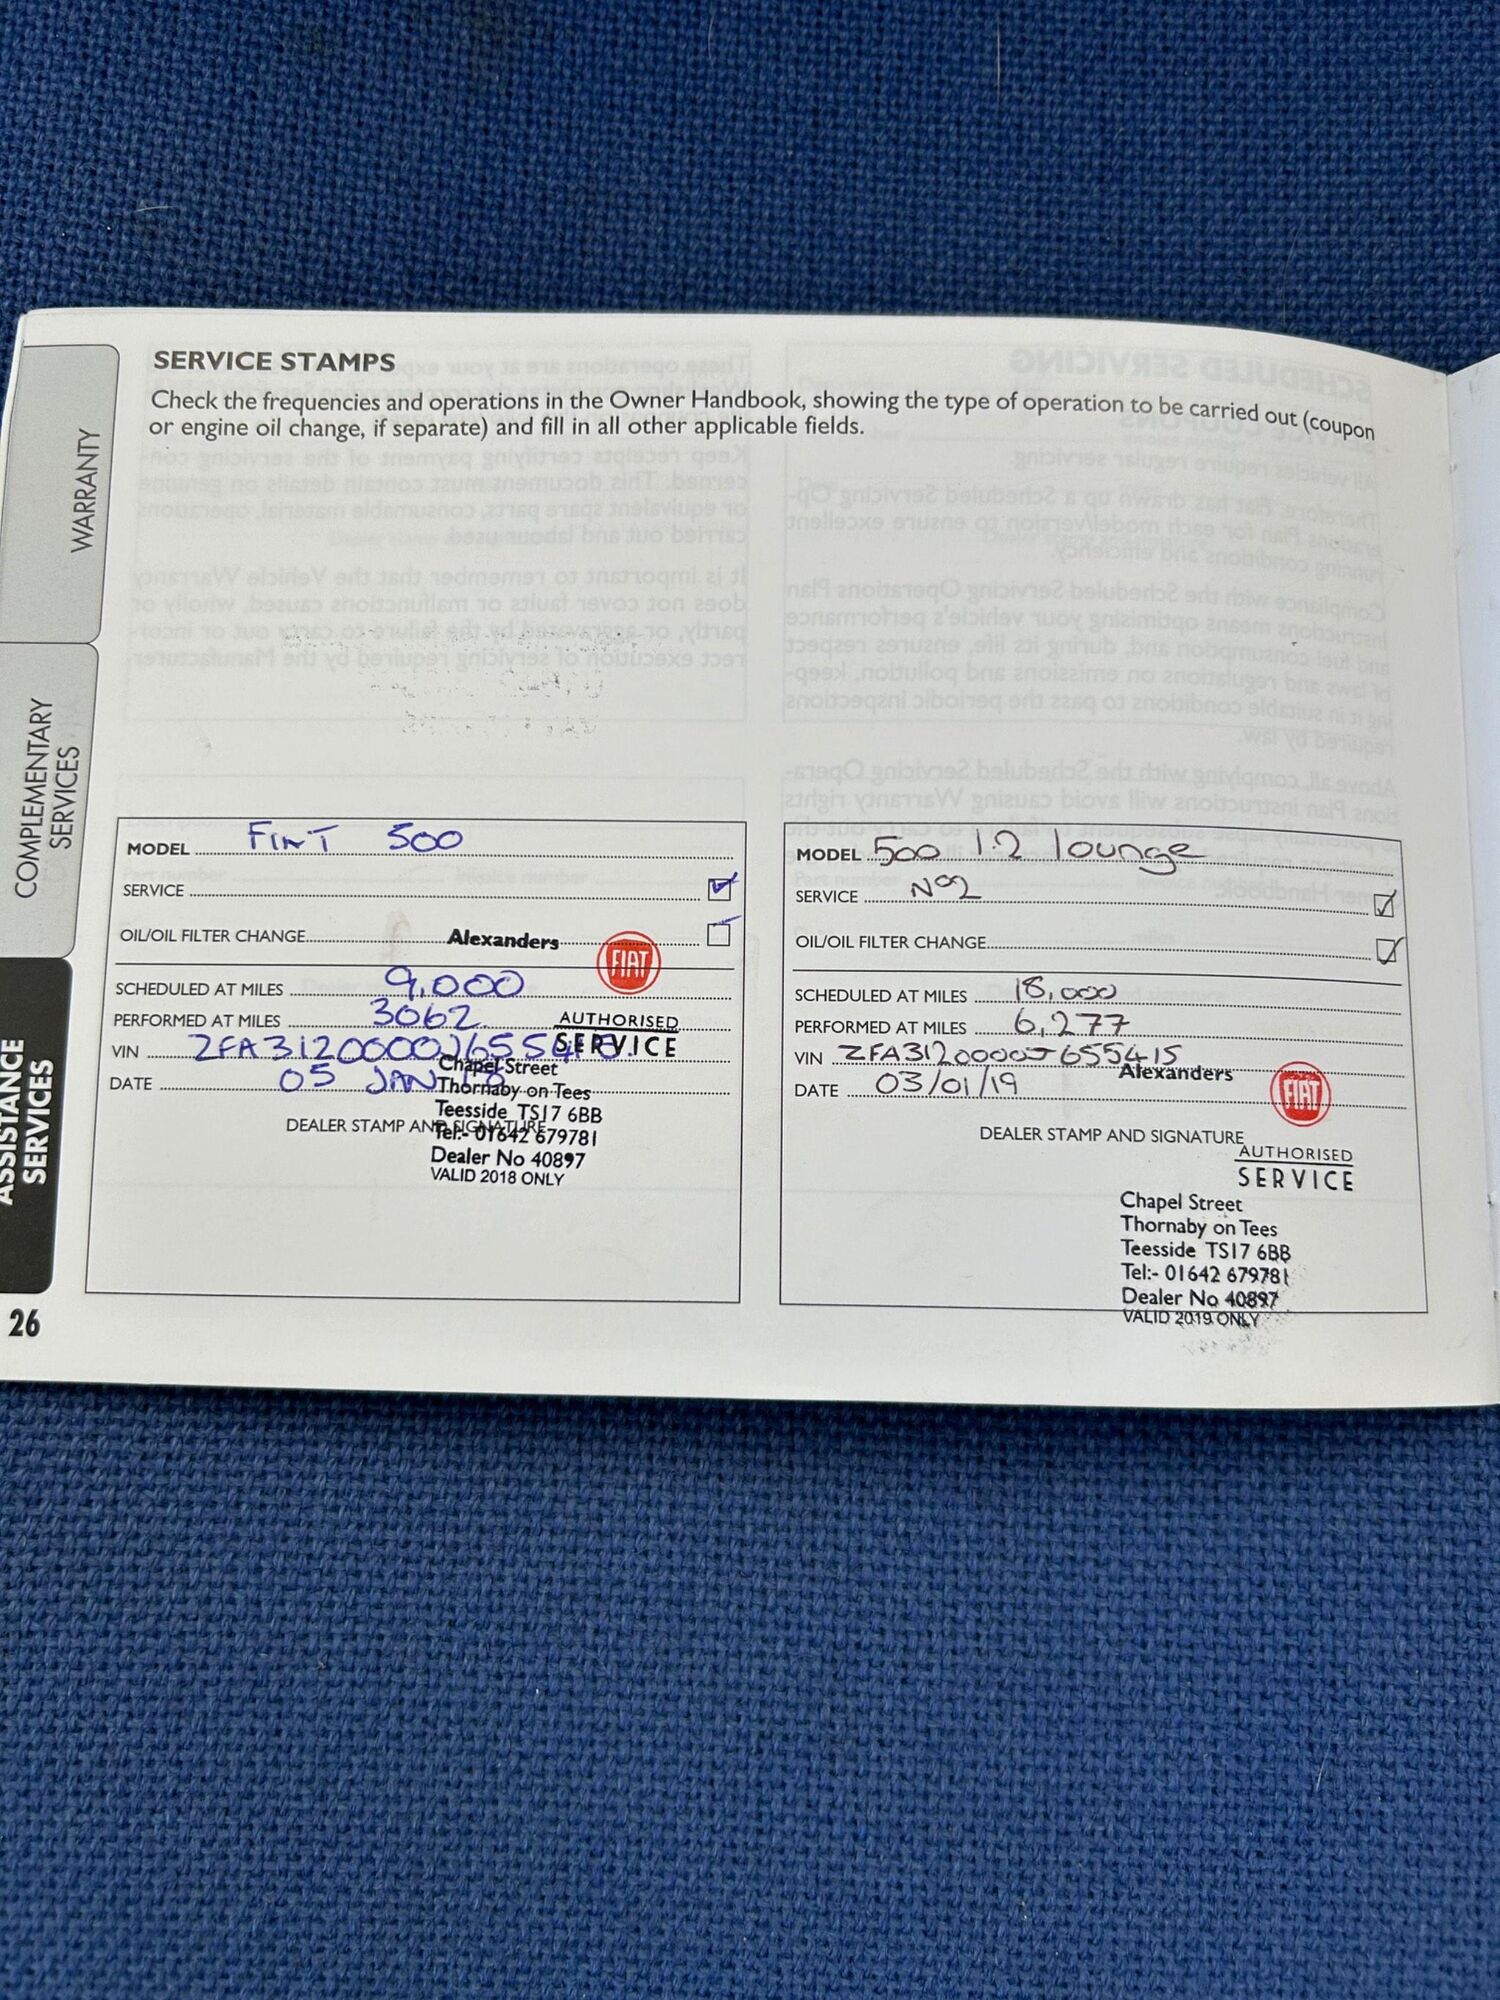 SERVICE STAMPS
Check the frequencies and operations in the Owner Handbook, showing the type of operation to be carried out (coupon
or engine oil change, if separate) and fill in all other applicable fields.
WARRANTY
COMPLEMENTARY
SERVICES
ASSISTANCE
SERVICES
26
MODEL FIAT 500
SERVICE
OIL/OIL FILTER CHANGE
Alexanders
FIAT
SCHEDULED AT MILES 9,000
PERFORMED AT MILES 3062
AUTHORISED
SERVICE
VIN ZFA3120000J6554
DATE 05 JAN
Chapel Street
Thornaby on Tees
Teesside TS17 6BB
DEALER STAMP AND SIGNATURE
Tel:- 01642 679781
Dealer No 40897
VALID 2018 ONLY
MODEL 500 1.2 lounge
SERVICE No2
OIL/OIL FILTER CHANGE
SCHEDULED AT MILES 18,000
PERFORMED AT MILES 6,277
VIN ZFA3120000J655415
DATE 03/01/19
Alexanders
FIAT
DEALER STAMP AND SIGNATURE
AUTHORISED
SERVICE
Chapel Street
Thornaby on Tees
Teesside TS17 6BB
Tel:- 01642 679781
Dealer No 40897
VALID 2019 ONLY